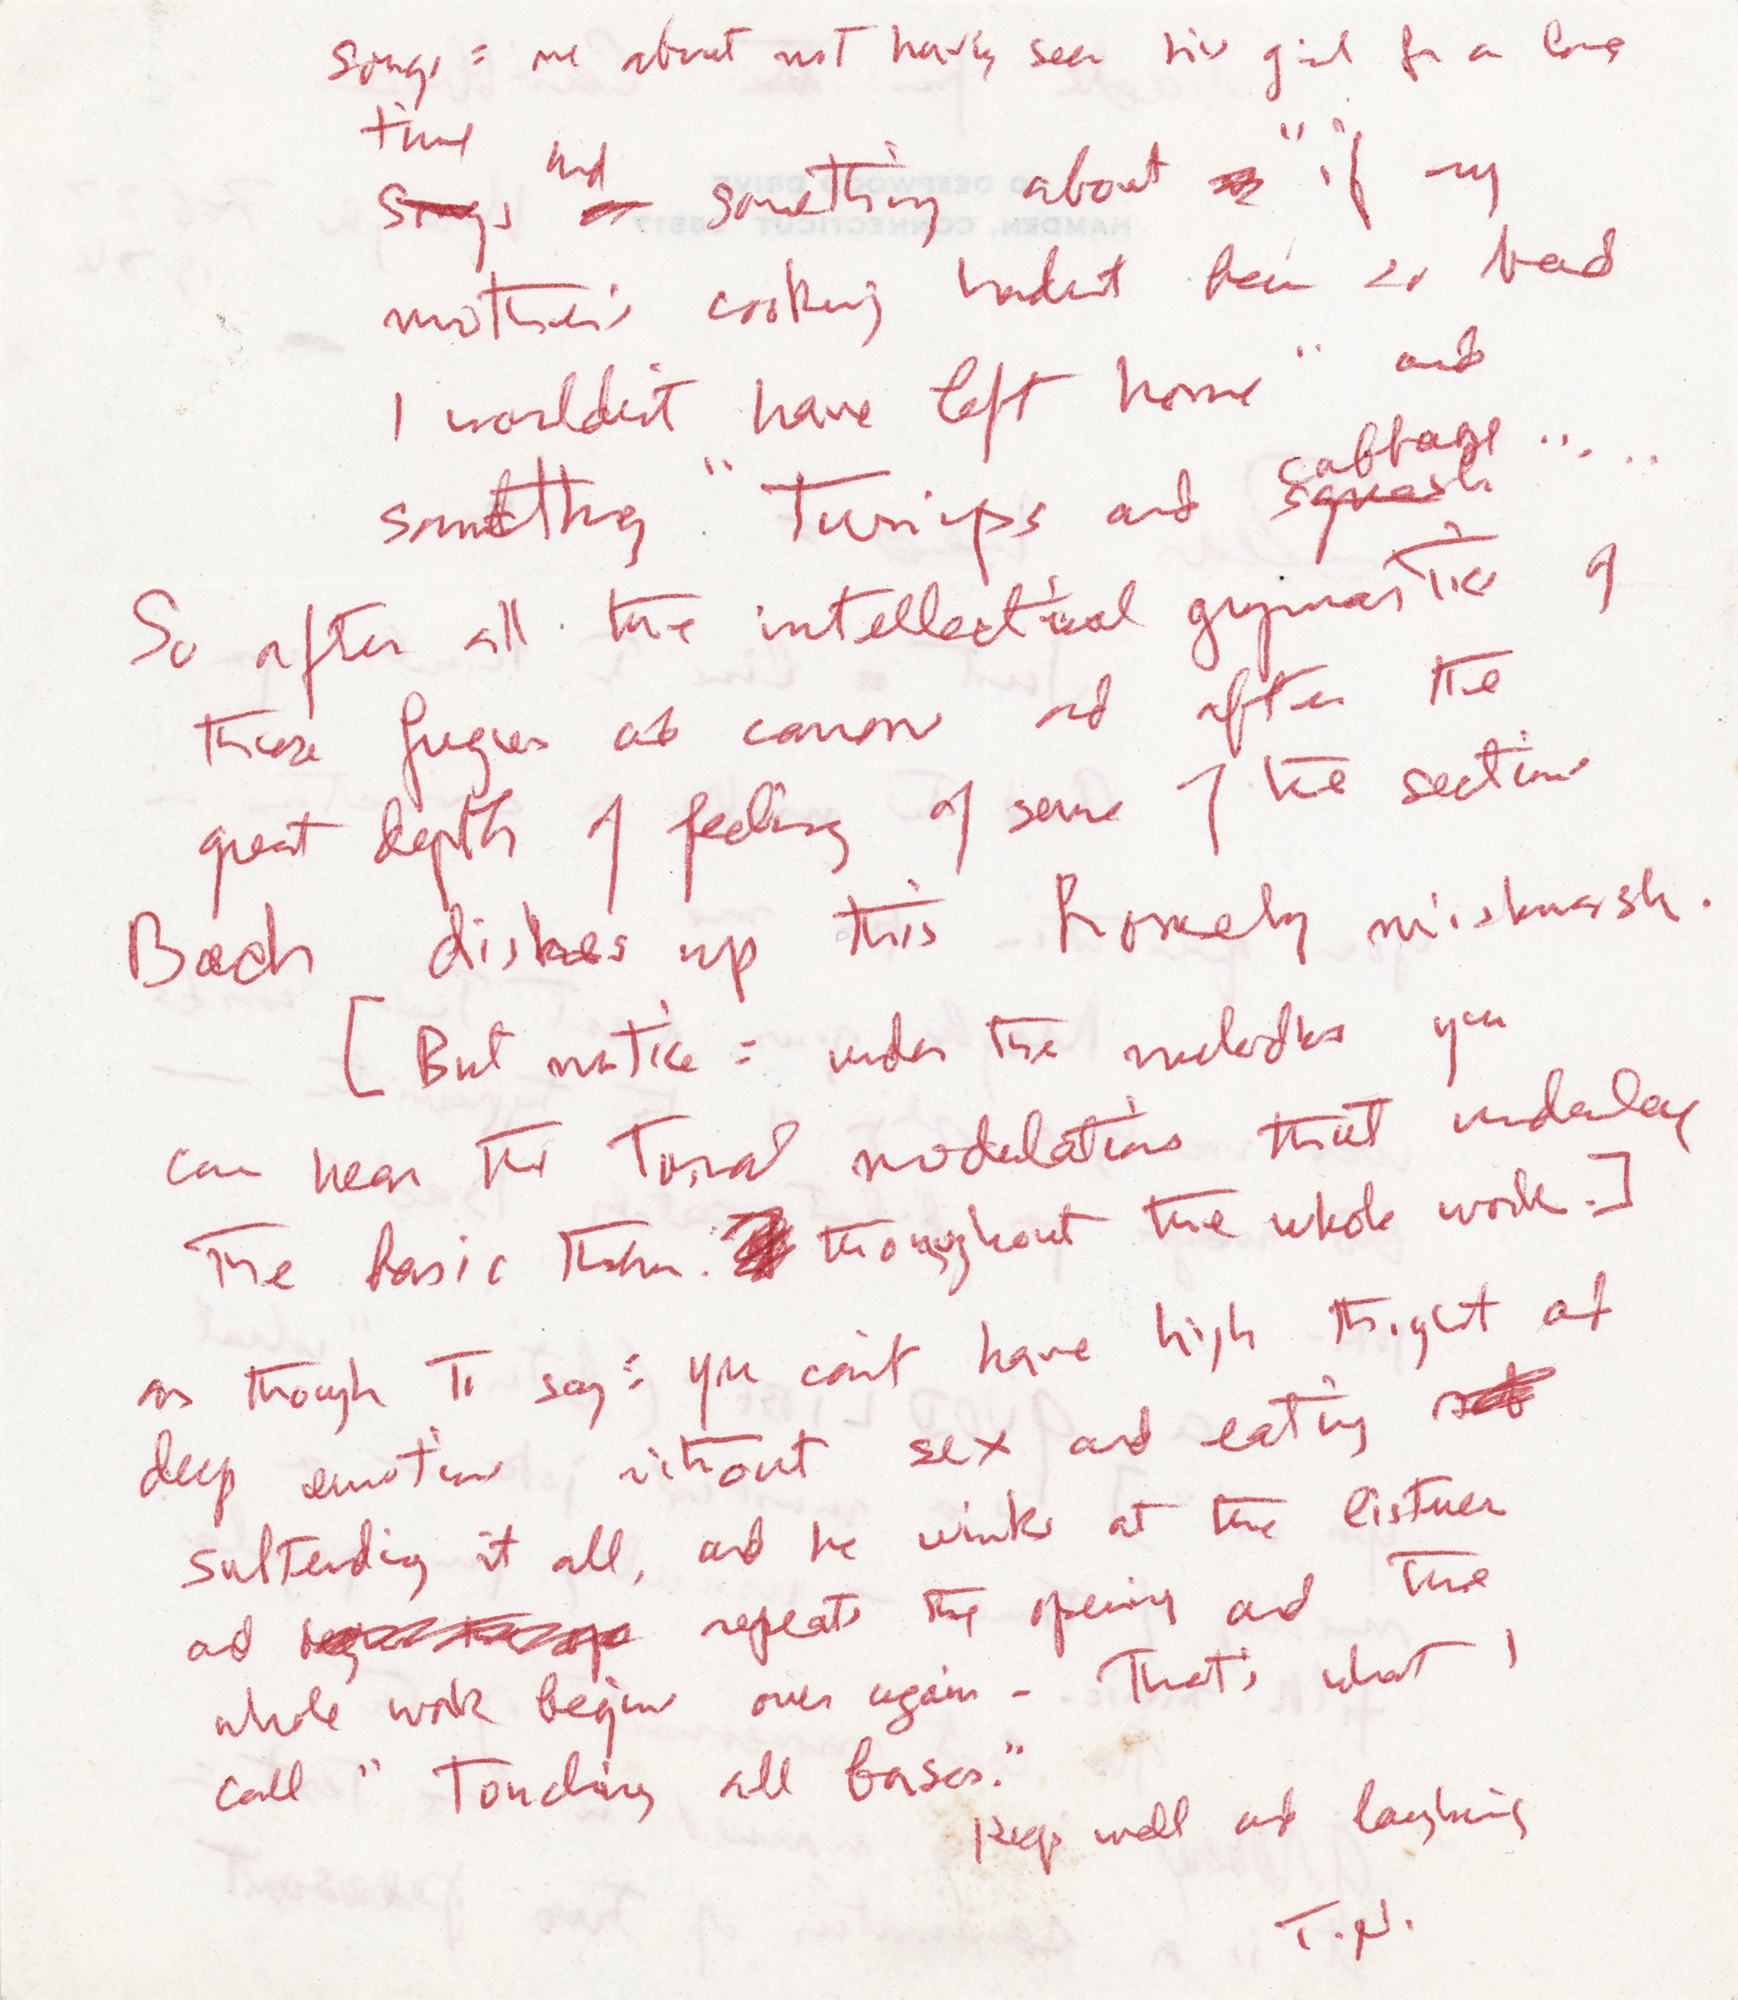 songs = one about not having seen his girl for a long
time
Songs and something about "if my
mother's cooking hadn't been so bad
I wouldn't have left home" and
something "Turnips and cabbage ..... squash
So after all the intellectual gymnastics of
those fugues and canons and after the
great depth of feeling of some of the sections
Bach dishes up this homely mishmash.
[But notice = under the melodies you
can hear the tonal modulations that underlay
the basic theme. throughout the whole work.]
as though to say = you can't have high thought and
deep emotion without sex and eating
subtending it all, and he winks at the listener
and repeats the opening and the
whole work begins over again – That's what I
call "Touching all bases."
Keep well and laughing
T.N.